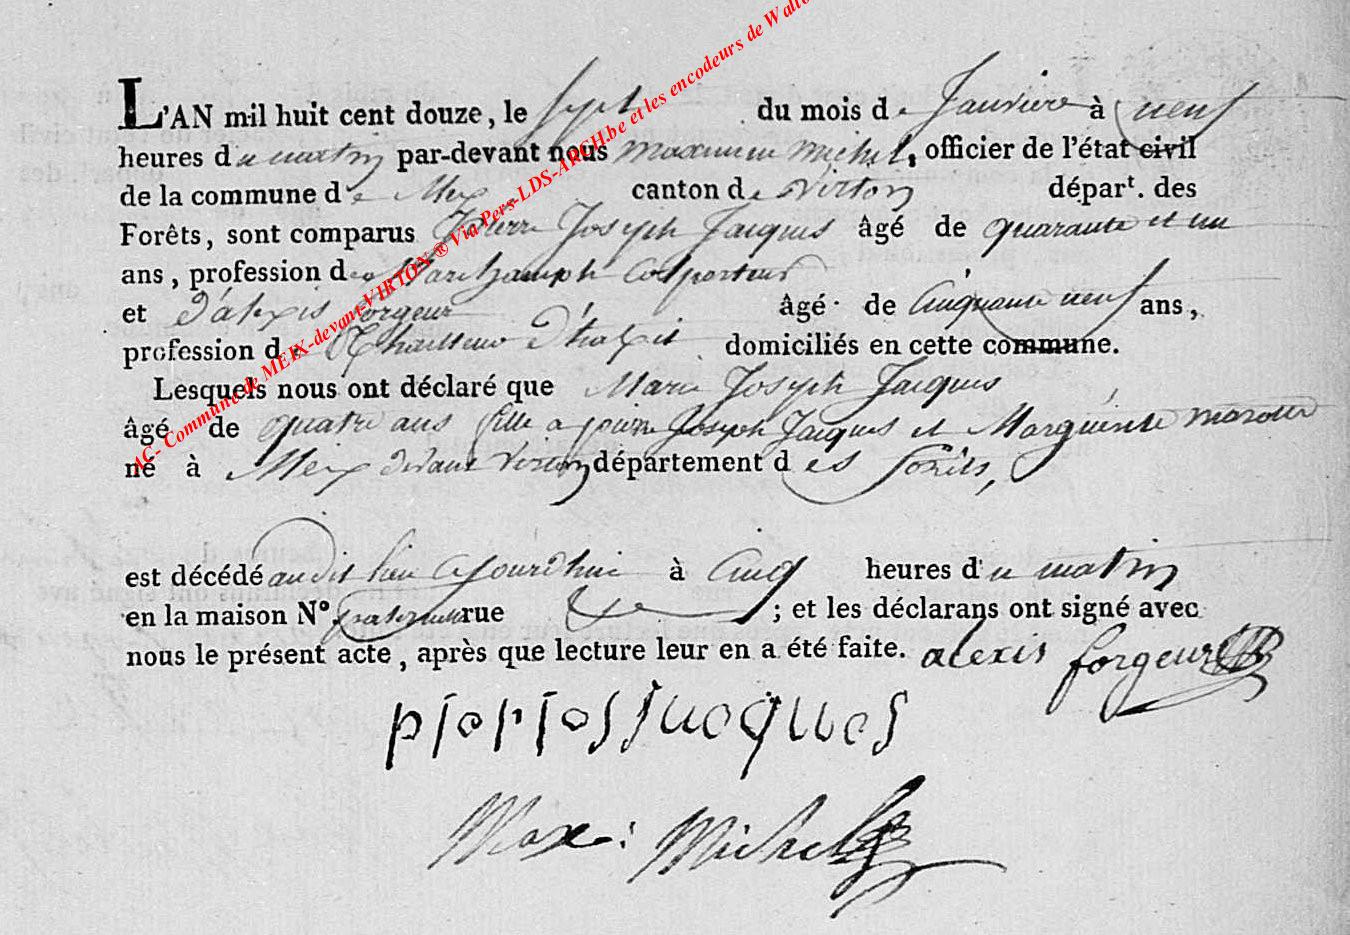 L'AN mil huit cent douze, le sept du mois de Janvière à neuf
heures du matin par-devant nous maximin michel, officier de l'état civil
de la commune de Meix canton de virton départ. des
Forêts, sont comparus Pierre Joseph Jacques âgé de quarante et un
ans, profession de Marchamph Colporteur
et D'alexis forgeur âgé de Cinquante neuf ans,
profession de domiciliés en cette commune.
Lesquels nous ont déclaré que Marie Joseph Jacques
âgé de quatre ans fille a pierre Joseph Jacques et Marguerite marotte
né à Meix devant virton département des forêts,
est décédé audit lieu aujourdhui à Cinq heures du matin
en la maison N° rue ; et les déclarans ont signé avec
nous le présent acte, après que lecture leur en a été faite. alexis forgeur
pierre ios jacques
Maxi: Michel
AC- Commune de MEIX-devant-VIRTON ® Via Pers-LDS-ARCH.be et les encodeurs de Wallo